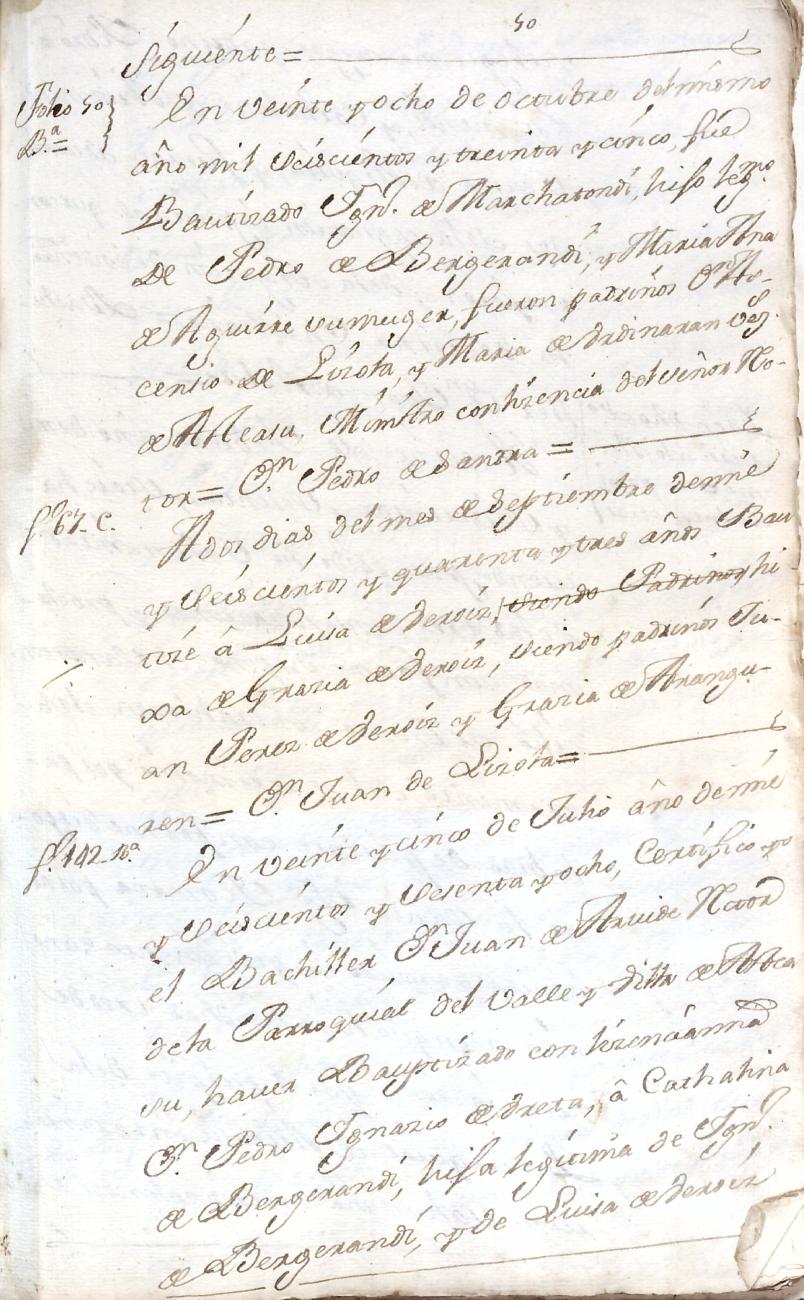 50
siguiente =
Folio 50
B.ª =
En veinte y ocho de octubre del mismo
año mil seiscientos y treinta y cinco, fue
Bautizado Ygn.º de Marchatondi, hijo leg.mo
de Pedro de Bergerandi, y Maria Ana
de Aguirre su muger, fueron padrinos D.n
censio de Lizola, y Maria de Ordinaran
de Alleasu, Ministro con lizencia del señor Rec-
tor = D.n Pedro de Sandra =
f.º 67. C.
A dos dias del mes de septiembre de mil
y seiscientos y quarenta y tres años Bau
tizé â Luisa de Yeroiz, siendo Padrinos hi-
xa de Grazia de Yeroiz, siendo padrinos Ju-
an Perez de Yeroiz y Grazia de Arangu-
ren = D.n Juan de Lizola =
f.º 142. B.ª
En veinte y cinco de Julio año de mil
y seiscientos y sesenta y ocho, Certifico yo
el Bachiller D.n Juan de Aruide Rector
de la Parroquial del valle y villa de
su, haver Bauptizado con lizencia mia
D.n Pedro Ygnazio de Vreta, â Cathalina
de Bergerandi, hija legitima de Ygn.º
de Bergerandi, y de Luisa de Yeroiz